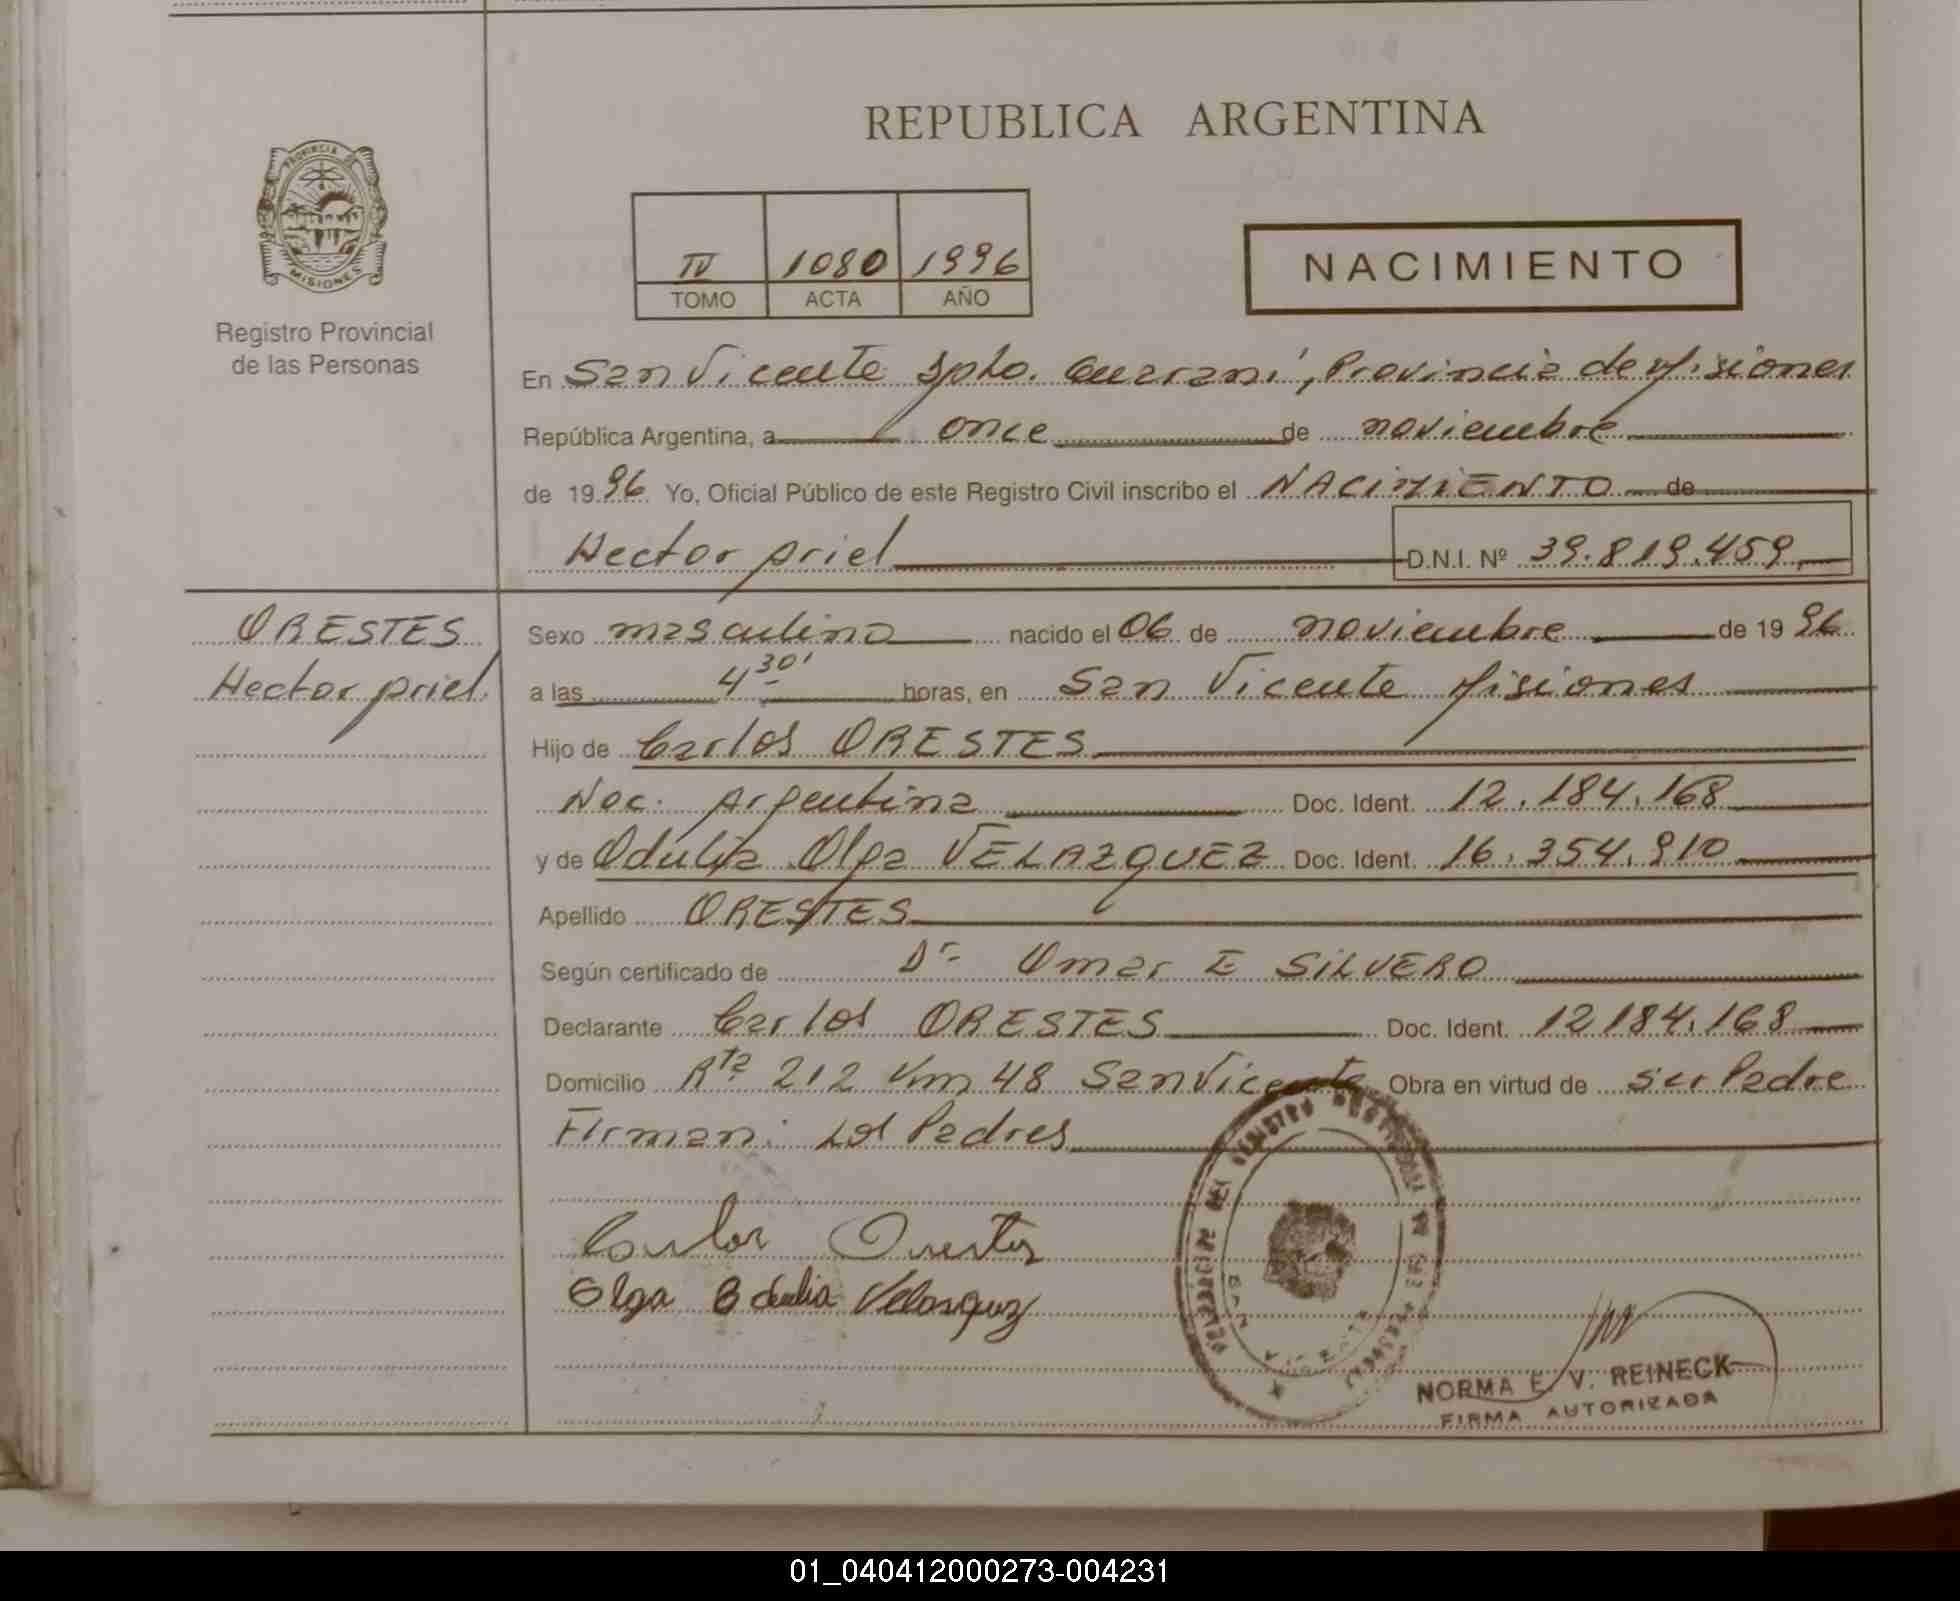 REPUBLICA ARGENTINA
PROVINCIA DE
MISIONES
Registro Provincial
de las Personas
IV 1080 1996
TOMO ACTA AÑO
NACIMIENTO
En San Vicente Dpto. Guarani, Provincia de Misiones
República Argentina, a once de noviembre
de 1996 Yo, Oficial Público de este Registro Civil inscribo el NACIMIENTO de
Hector Ariel D.N.I. Nº 39.819.459
ORESTES
Hector Ariel
Sexo masculino nacido el 06 de noviembre de 1996
a las 4 30' horas, en San Vicente Misiones
Hijo de Carlos ORESTES
Nac. Argentina Doc. Ident. 12.184.168
y de Odulia Olga VELAZQUEZ Doc. Ident. 16.354.910
Apellido ORESTES
Según certificado de Dr Omar E SILVERO
Declarante Carlos ORESTES Doc. Ident. 12184.168
Domicilio Rta 212 Km 48 San Vicente Obra en virtud de ser Padre
Firman: Los Padres
Carlos Orestes
Olga Odulia Velasquez
DELEGACION DEL REGISTRO PROVINCIAL DE LAS PERSONAS
SAN VICENTE
NORMA E. V. REINECK
FIRMA AUTORIZADA
01_040412000273-004231